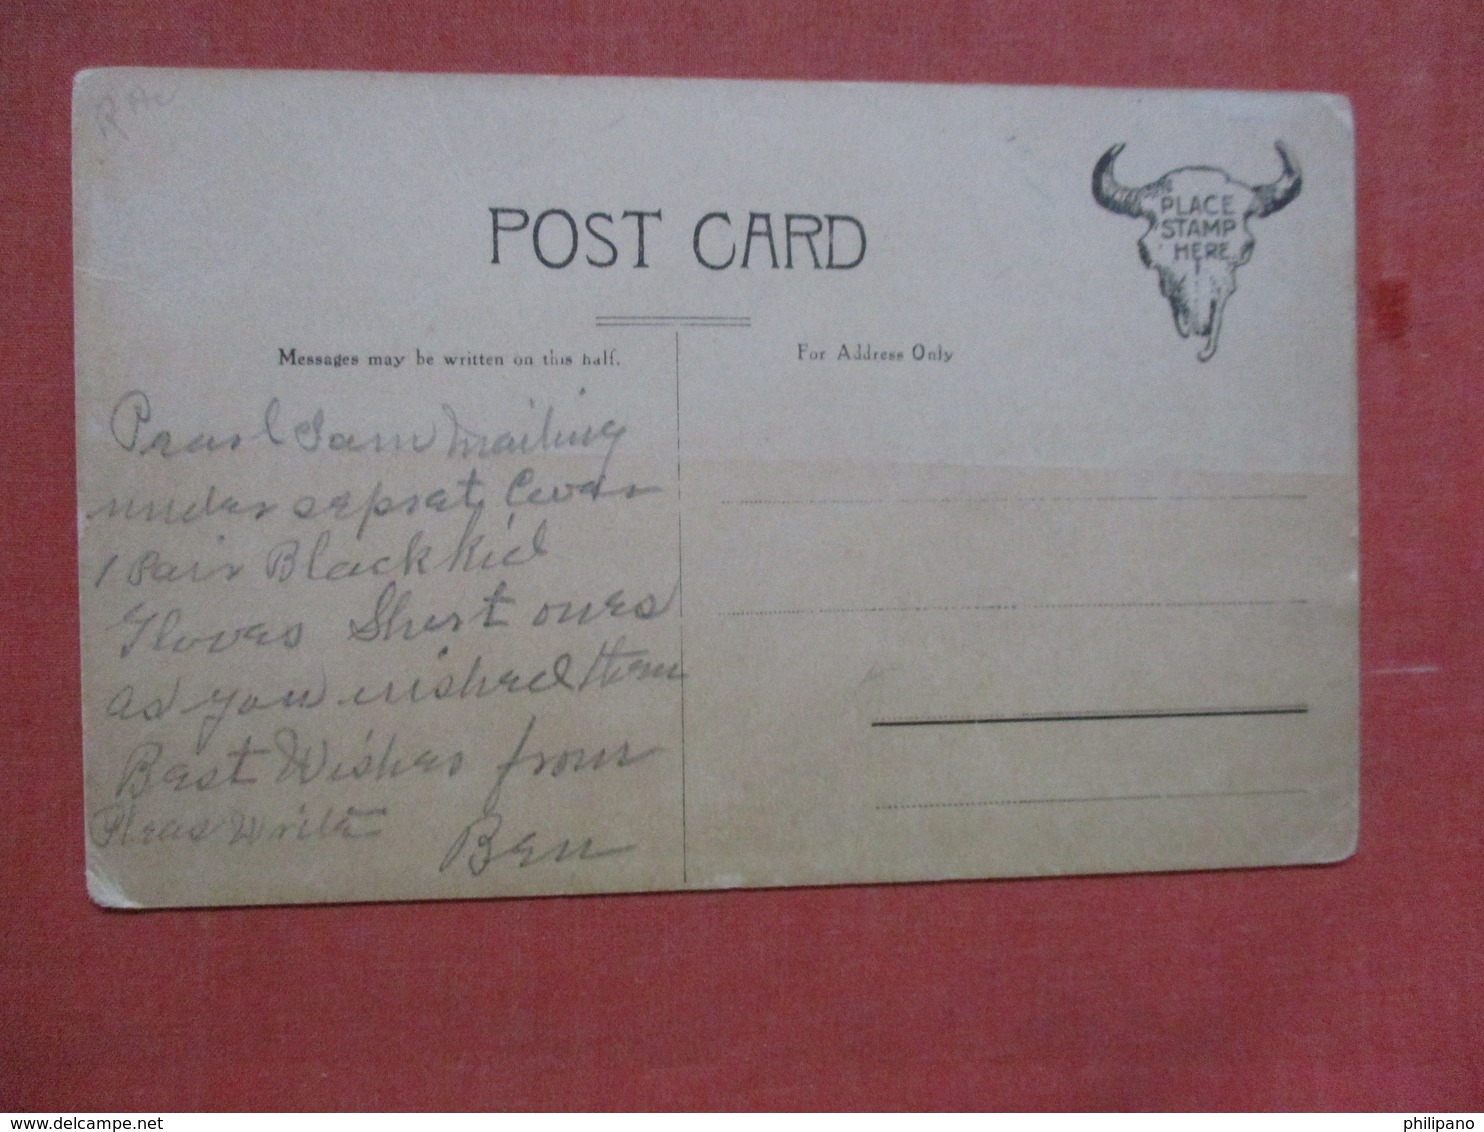 POST CARD
PLACE
STAMP
HERE
Messages may be written on this half.
For Address Only
Pearl I am mailing
under seprat Cover
1 Pair Black Kid
Gloves Short ones
as you wished them
Best Wishes from
Pleas Write
Ben
philipano